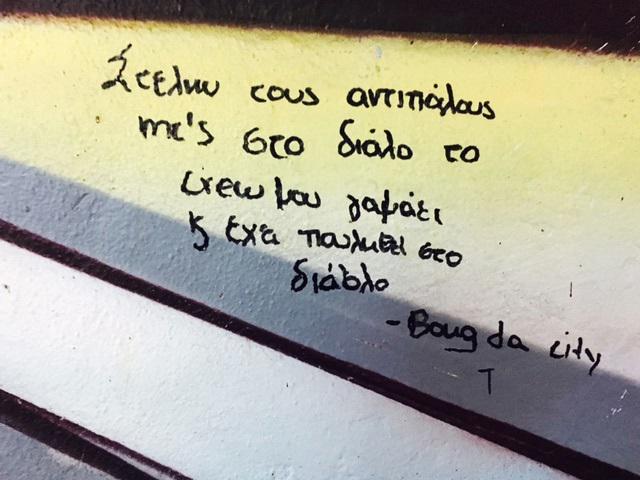 Στελνω τους αντιπάλους
mc's στο διάλο το
γαμάει
κ έχει πουληθεί στο
διάβλο
- Boug da city
T